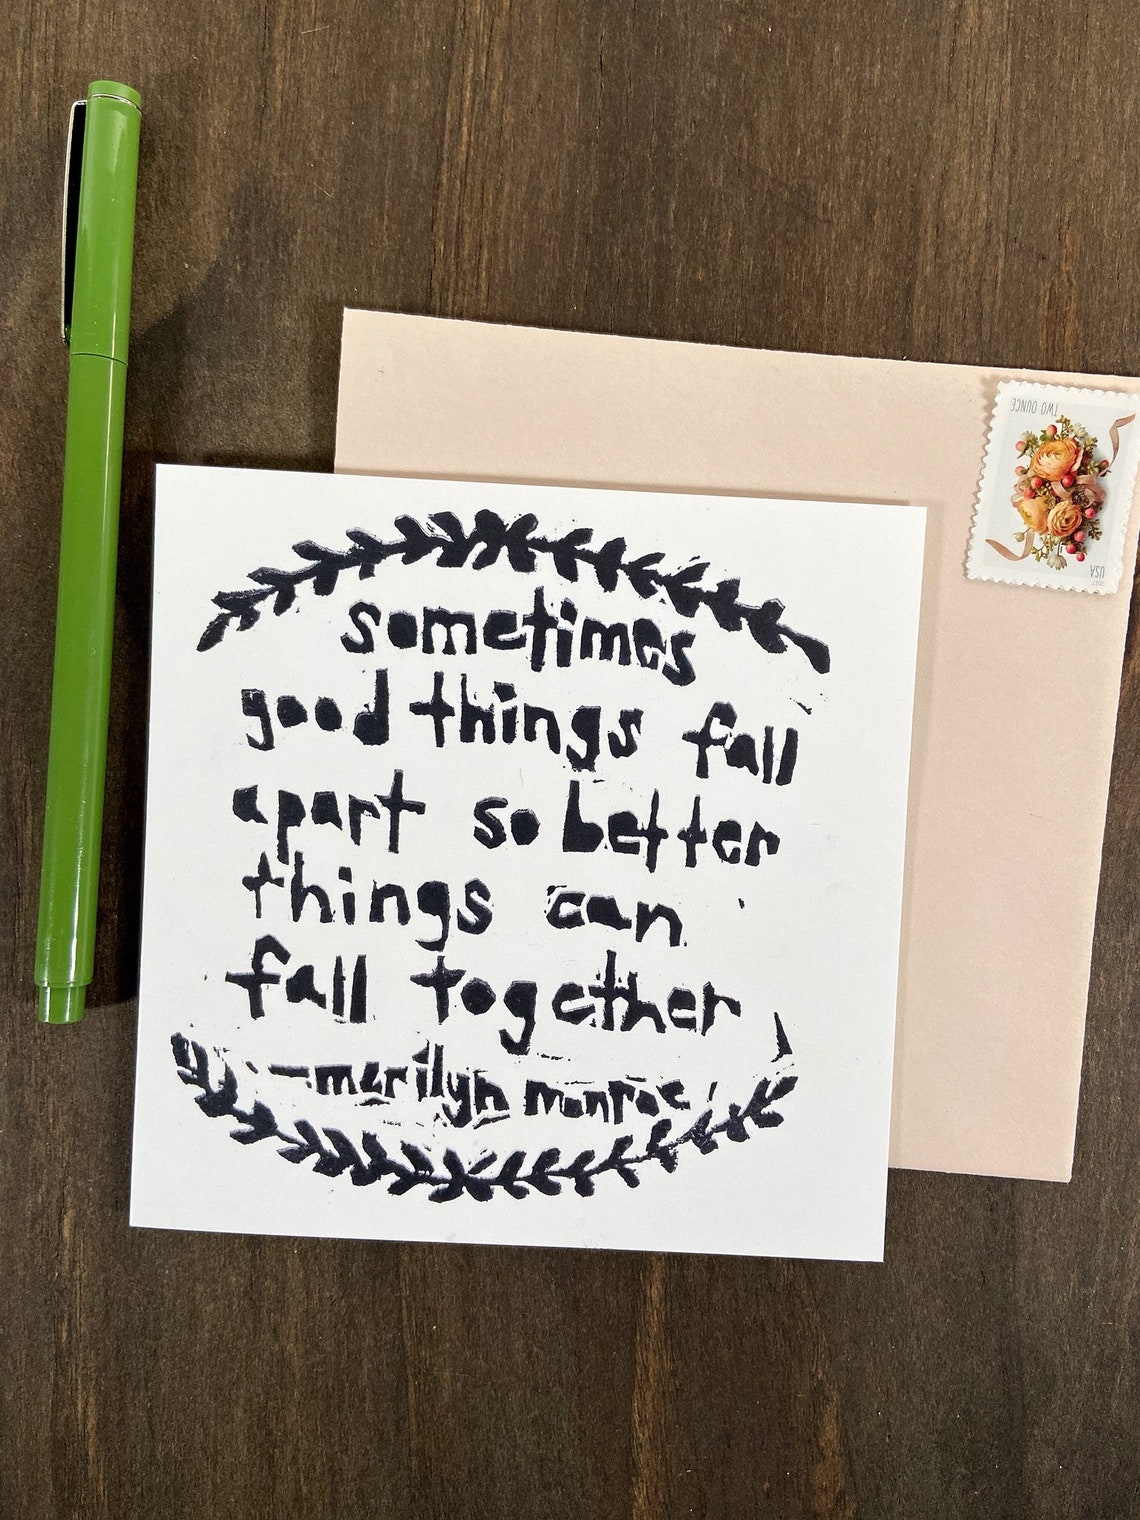 sometimes
good things fall
apart so better
things can
fall together
—marilyn monroe
TWO OUNCE
USA
2017